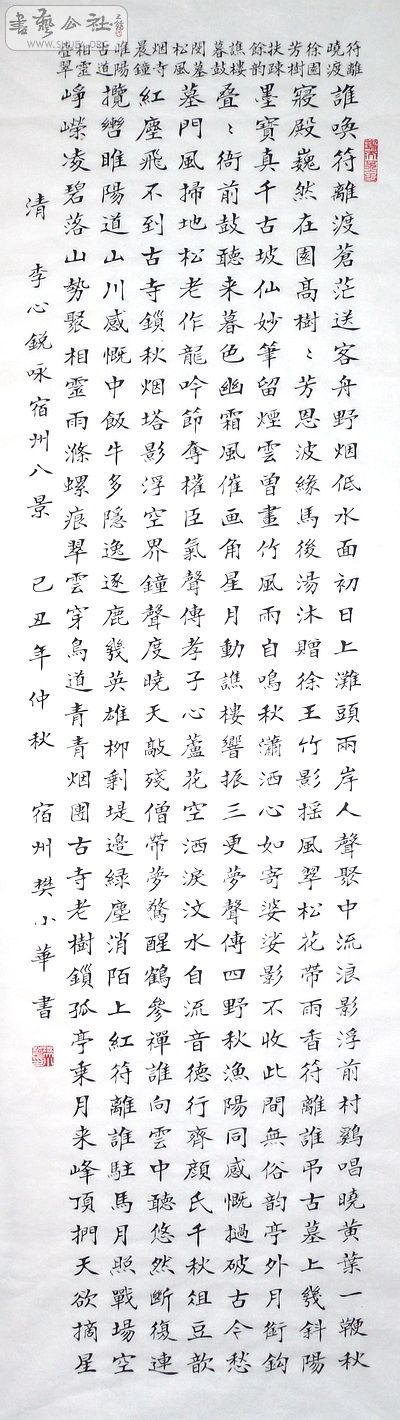 書藝公社
符離
曉渡
徐園
芳樹
扶疎
餘韵
譙樓
暮鼓
閔墓
松風
烟寺
晨鐘
睢陽
古道
相靈
疊翠
誰喚符離渡蒼茫送客舟野烟低水面初日上灘頭兩岸人聲聚中流浪影浮前村鷄唱曉黃葉一鞭秋
寢殿巍然在園高樹〻芳恩波緣馬後湯沐贈徐王竹影摇風翠松花帶雨香符離誰弔古墓上幾斜陽
墨寶真千古坡仙妙筆留煙雲曾畫竹風雨自鳴秋瀟洒心如寄婆娑影不收此間無俗韵亭外月銜鈎
叠〻衙前鼓聽来暮色幽霜風催画角星月動譙樓響振三更夢聲傳四野秋漁陽同感慨撾破古今愁
墓門風掃地松老作龍吟節奪權臣氣聲傳孝子心蘆花空洒淚汶水自流音德行齊顔氏千秋俎豆歆
紅塵飛不到古寺鎖秋烟塔影浮空界鐘聲度曉天敲殘僧帶夢驚醒鶴參禪誰向雲中聽悠然斷復連
攬轡睢陽道山川感慨中飯牛多隱逸逐鹿幾英雄柳剩堤邊緑塵消陌上紅符離誰駐馬月照戰場空
崢嶸凌碧落山勢聚相靈雨滌螺痕翠雲穿鳥道青青烟團古寺老樹鎖孤亭乘月来峰頂捫天欲摘星
清 李心鋭咏宿州八景 己丑年仲秋 宿州樊小華書